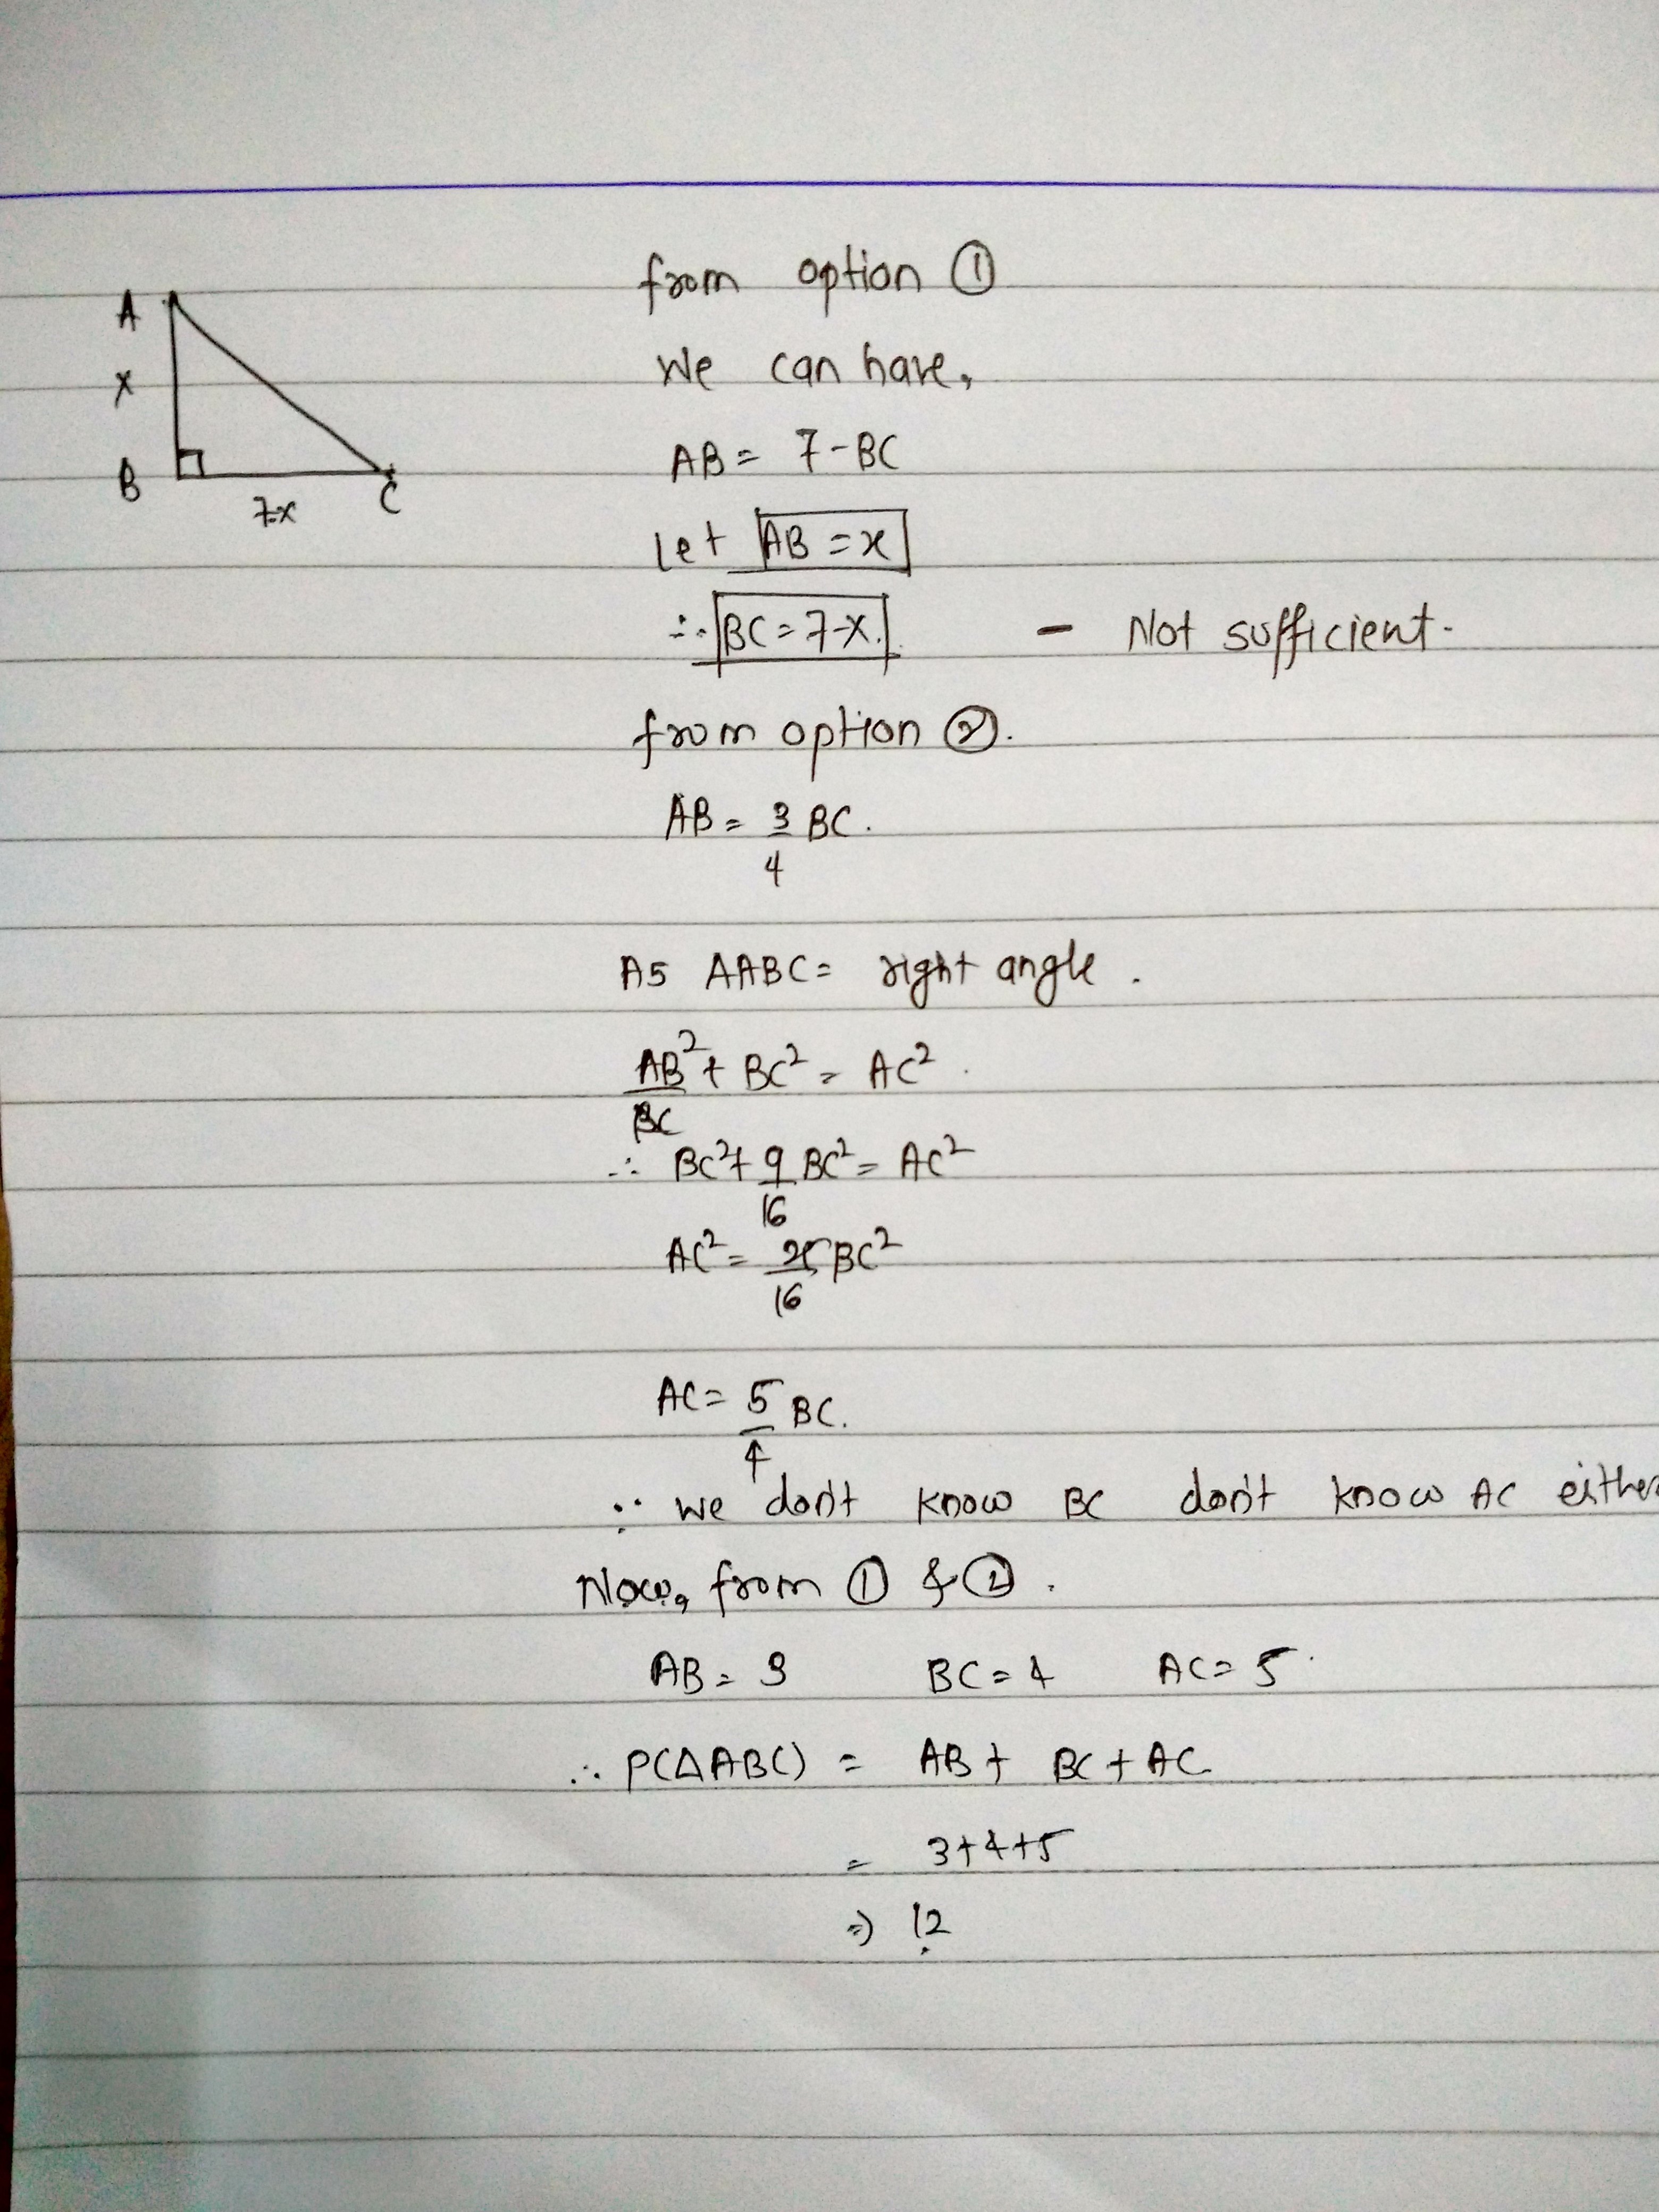 A
x
B
7-x
C
from option ①
We can have,
AB = 7-BC
Let AB = x
∴ BC = 7-x. - Not sufficient.
from option ②.
AB = 3/4 BC.
AS ΔABC = right angle.
AB² + BC² = AC².
BC
∴ BC² + 9/16 BC² = AC²
AC² = 25/16 BC²
AC = 5/4 BC.
∵ we don't know BC don't know AC either
Now, from ① & ②.
AB = 3 BC = 4 AC = 5.
∴ P(ΔABC) = AB + BC + AC
= 3+4+5
⇒ 12